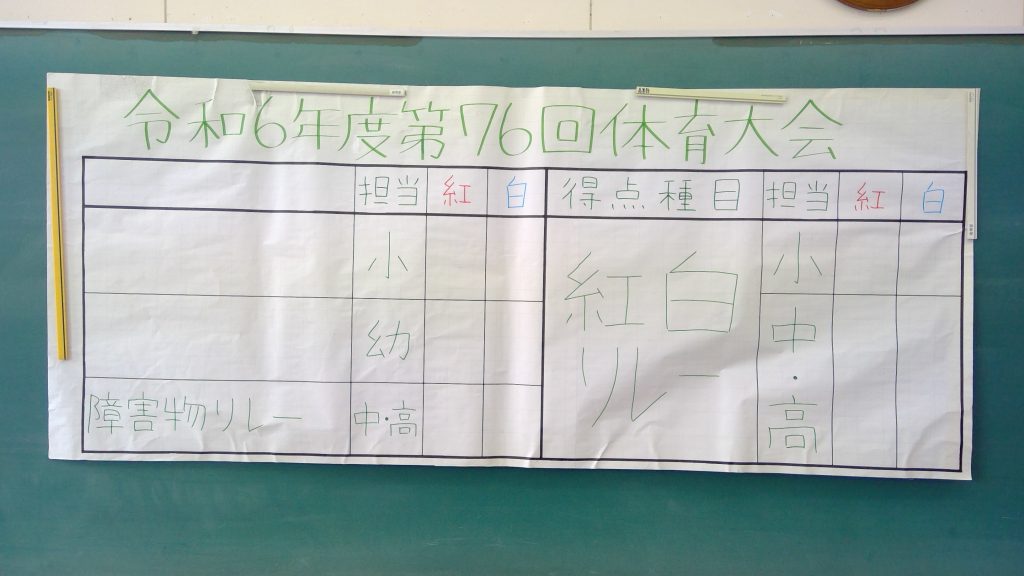 令和6年度第76回体育大会
担当 紅 白 得点種目 担当 紅 白
小
幼
障害物リレー 中・高
紅白
リレー
小
中・高